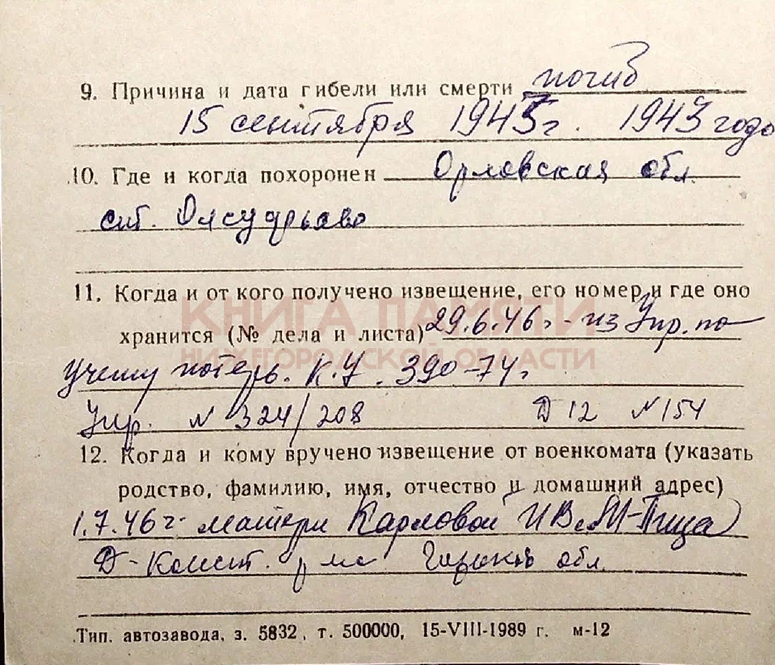 9. Причина и дата гибели или смерти погиб
15 сентября 1945г. 1943 года
10. Где и когда похоронен Орловская обл.
ст.
11. Когда и от кого получено извещение, его номер и где оно
КНИГА ПАМЯТИ
хранится (№ дела и листа) 29.6.46г. из Упр. по
НИЖЕГОРОДСКОЙ ОБЛАСТИ
учету потерь. К.У. 390-74г
Упр. N 324/208 Д 12 N 154
12. Когда и кому вручено извещение от военкомата (указать
родство, фамилию, имя, отчество и домашний адрес)
1.7.46г. матери Карловой
Д-Конст. р-на Горьков обл.
Тип. автозавода, з. 5832, т. 500000, 15-VIII-1989 г. м-12